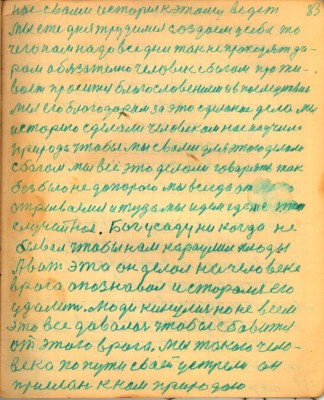 83
нас свами история к этому ведет
мы эти дня трудимся создаем дела то
чего нам надо все дни так не проходят да-
ром обязательно человек с богом про жи-
вает просит благословения в последствии
мы его благодарим за это сделаное дело мы
историю сделали человекам нас научила
природа чтобы мы свами для этого делом
с богом мы всё это делали говорят так
без бога не до порога мы всегда от
открываемся и туда мы идем где
случайное. Бог усаду никогда не
бывал чтобы нам караулил плоды
Адвит это он делал на человека
врага опознавал и старался его
удалить. Люди кинулись но не всем
это все давалось чтобы избавится
от этого врага. Мы такого чело-
века по пути своей устрели он
прислан к нам природою